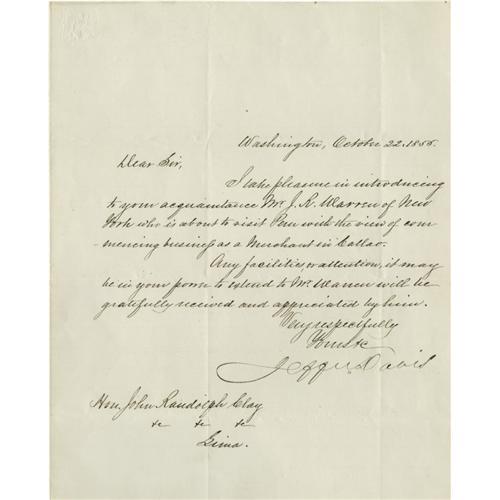 Washington, October 22. 1855.
Dear Sir,
I take pleasure in introducing
to your acquaintance Mr. J. R. Warren of New
York who is about to visit Peru with the view of com
-mencing business as a Merchant in Callao.
Any facilities, or attention, it may
be in your power to extend to Mr. Warren will be
gratefully received and appreciated by him.
Very respectfully
Yours &c
Jeffn. Davis
Hon. John Randolph Clay
&c &c &c
Lima.